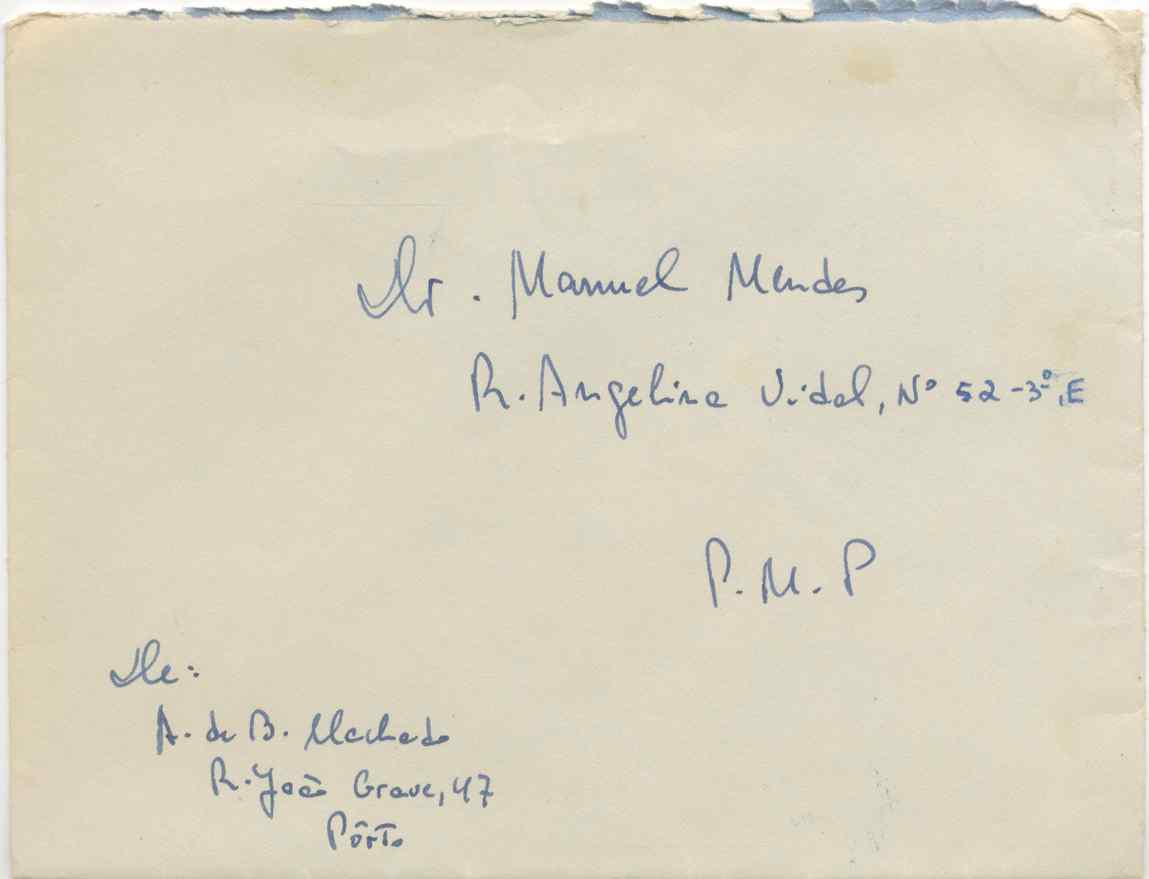 Dr. Manuel Mendes
R. Angelina Vidal, Nº 52-3º, E
P.M.P
De:
A. de B. Machado
R. João Grave, 47
Pôrto